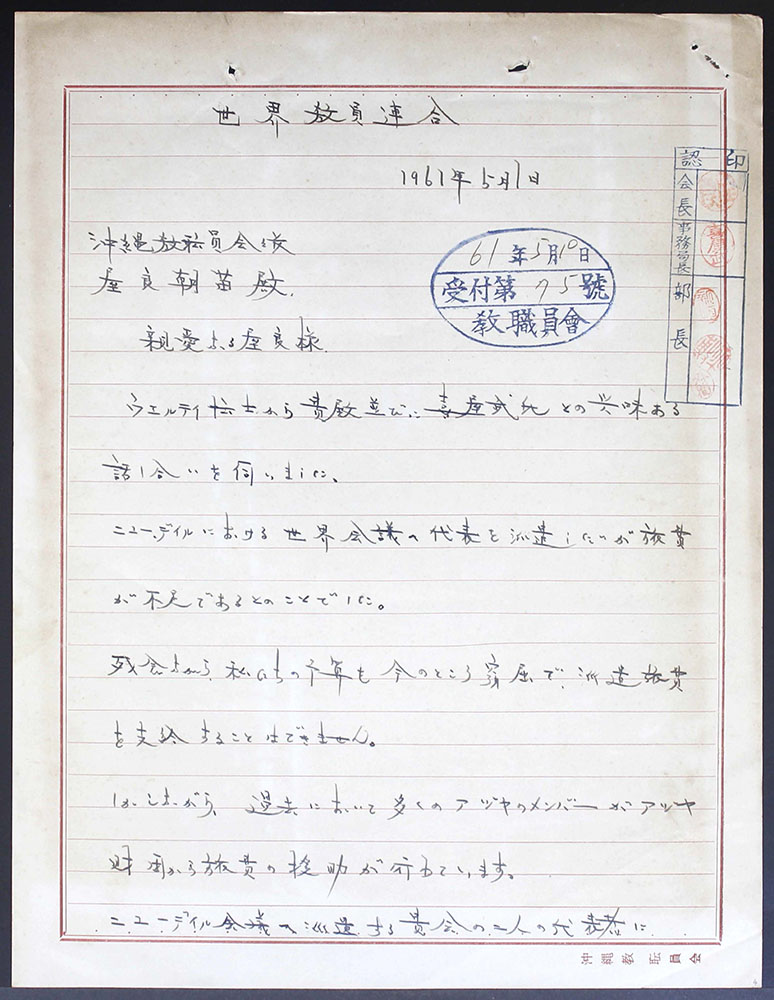 世界教員連合
1961年5月1日
認印
会長
事務局長
部長
沖縄教職員会々長
屋良朝苗殿.
61年5月10日
受付第75號
教職員會
親愛なる屋良様.
ウエルティ博士から貴殿並びに喜屋武氏との興味ある
話し合いを伺いました。
ニューデイルにおける世界会議へ代表を派遣したいが旅費
が不足であるとのことでした。
残念ながら、私たちの予算も今のところ窮屈で、派遣旅費
を支給することはできません。
しかしながら、過去において多くのアヅヤのメンバーがアヅヤ
財団から旅費の援助が行われています。
ニューデイル会議へ派遣する貴会の二人の代表者に
沖縄教職員会